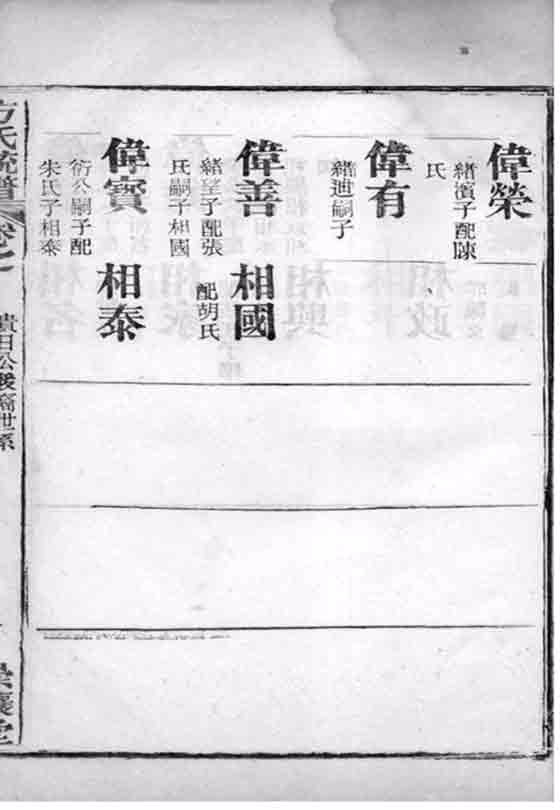 偉榮
緒濱子配陳
氏
偉有
緒迣嗣子
偉善
緒琞子配張
氏嗣子相國
相國
配胡氏
偉寶
衍公嗣子配
朱氏子相泰
相泰
方氏統譜
卷七
公後裔世系